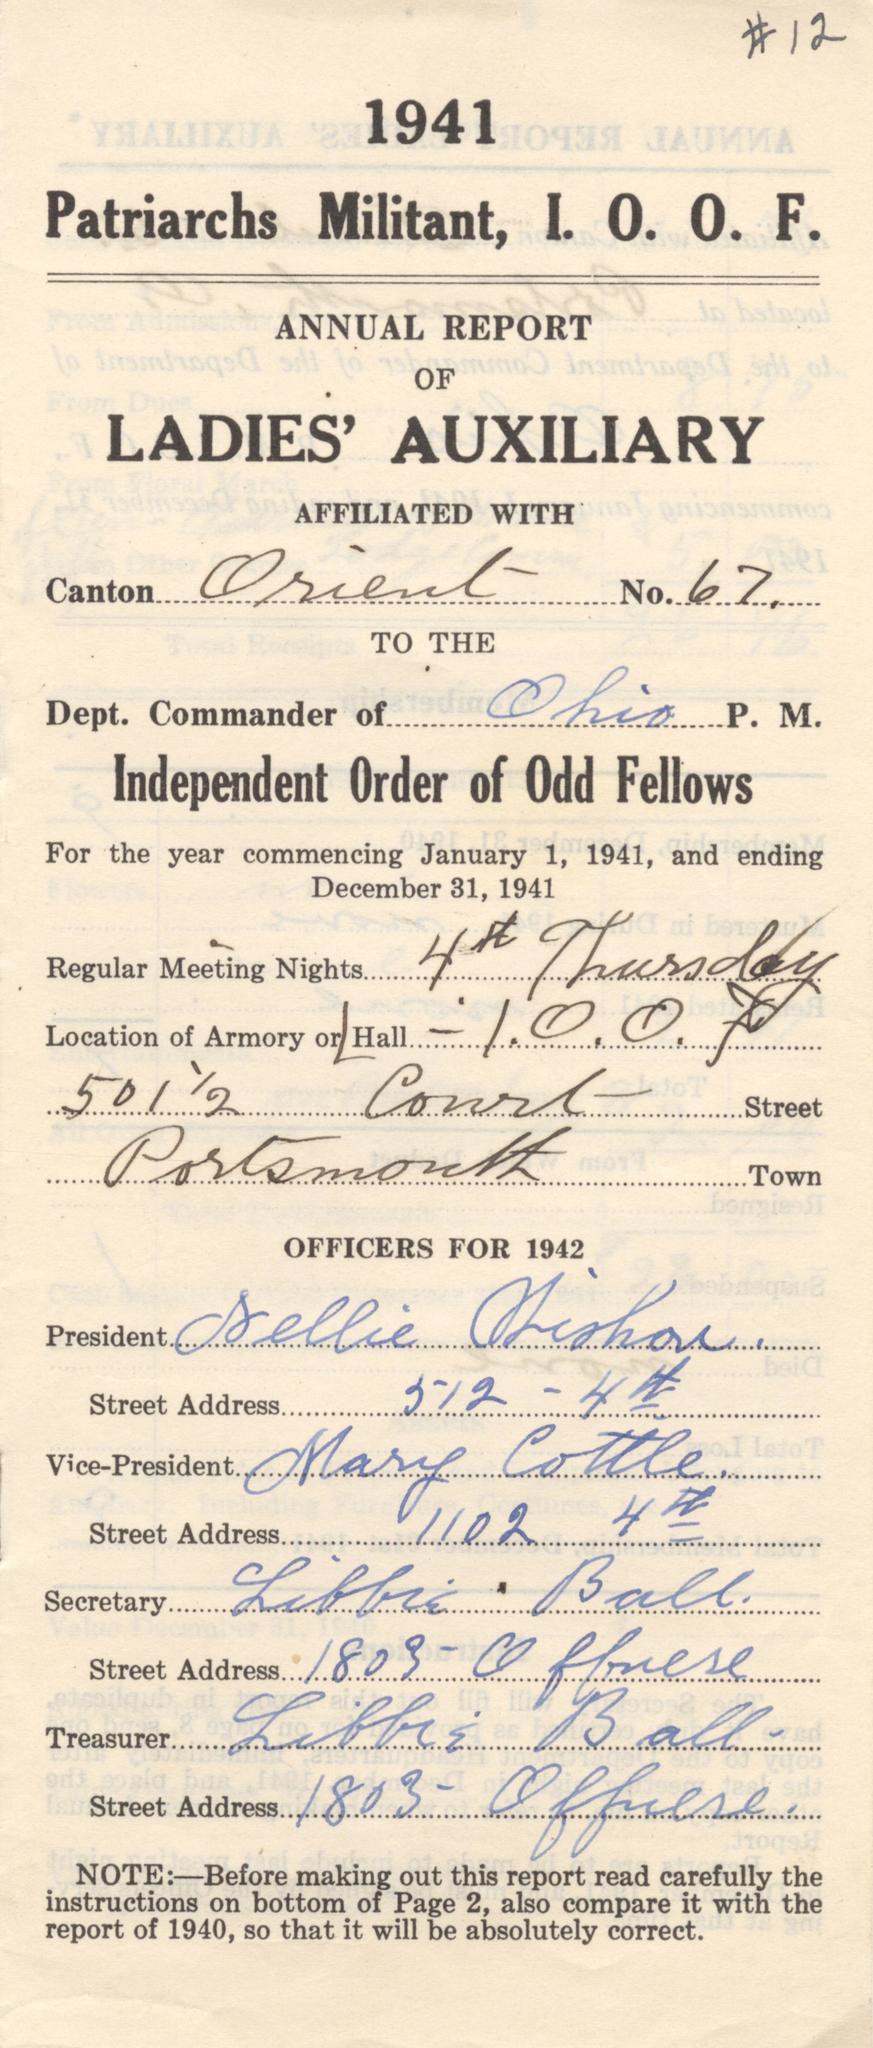 #12
1941
Patriarchs Militant, I. O. O. F.
ANNUAL REPORT
OF
LADIES' AUXILIARY
AFFILIATED WITH
Canton Orient No. 67.
TO THE
Dept. Commander of Ohio P. M.
Independent Order of Odd Fellows
For the year commencing January 1, 1941, and ending
December 31, 1941
Regular Meeting Nights 4th Thursday
Location of Armory or Hall - I.O.O.F
501 1/2 Court Street
Portsmouth Town
OFFICERS FOR 1942
President Nellie
Street Address 512 - 4th
Vice-President Mary Cottle.
Street Address 1102 4th
Secretary Libbie Ball.
Street Address 1803- Offnere
Treasurer Libbie Ball-
Street Address 1803- Offnere.
NOTE:—Before making out this report read carefully the
instructions on bottom of Page 2, also compare it with the
report of 1940, so that it will be absolutely correct.